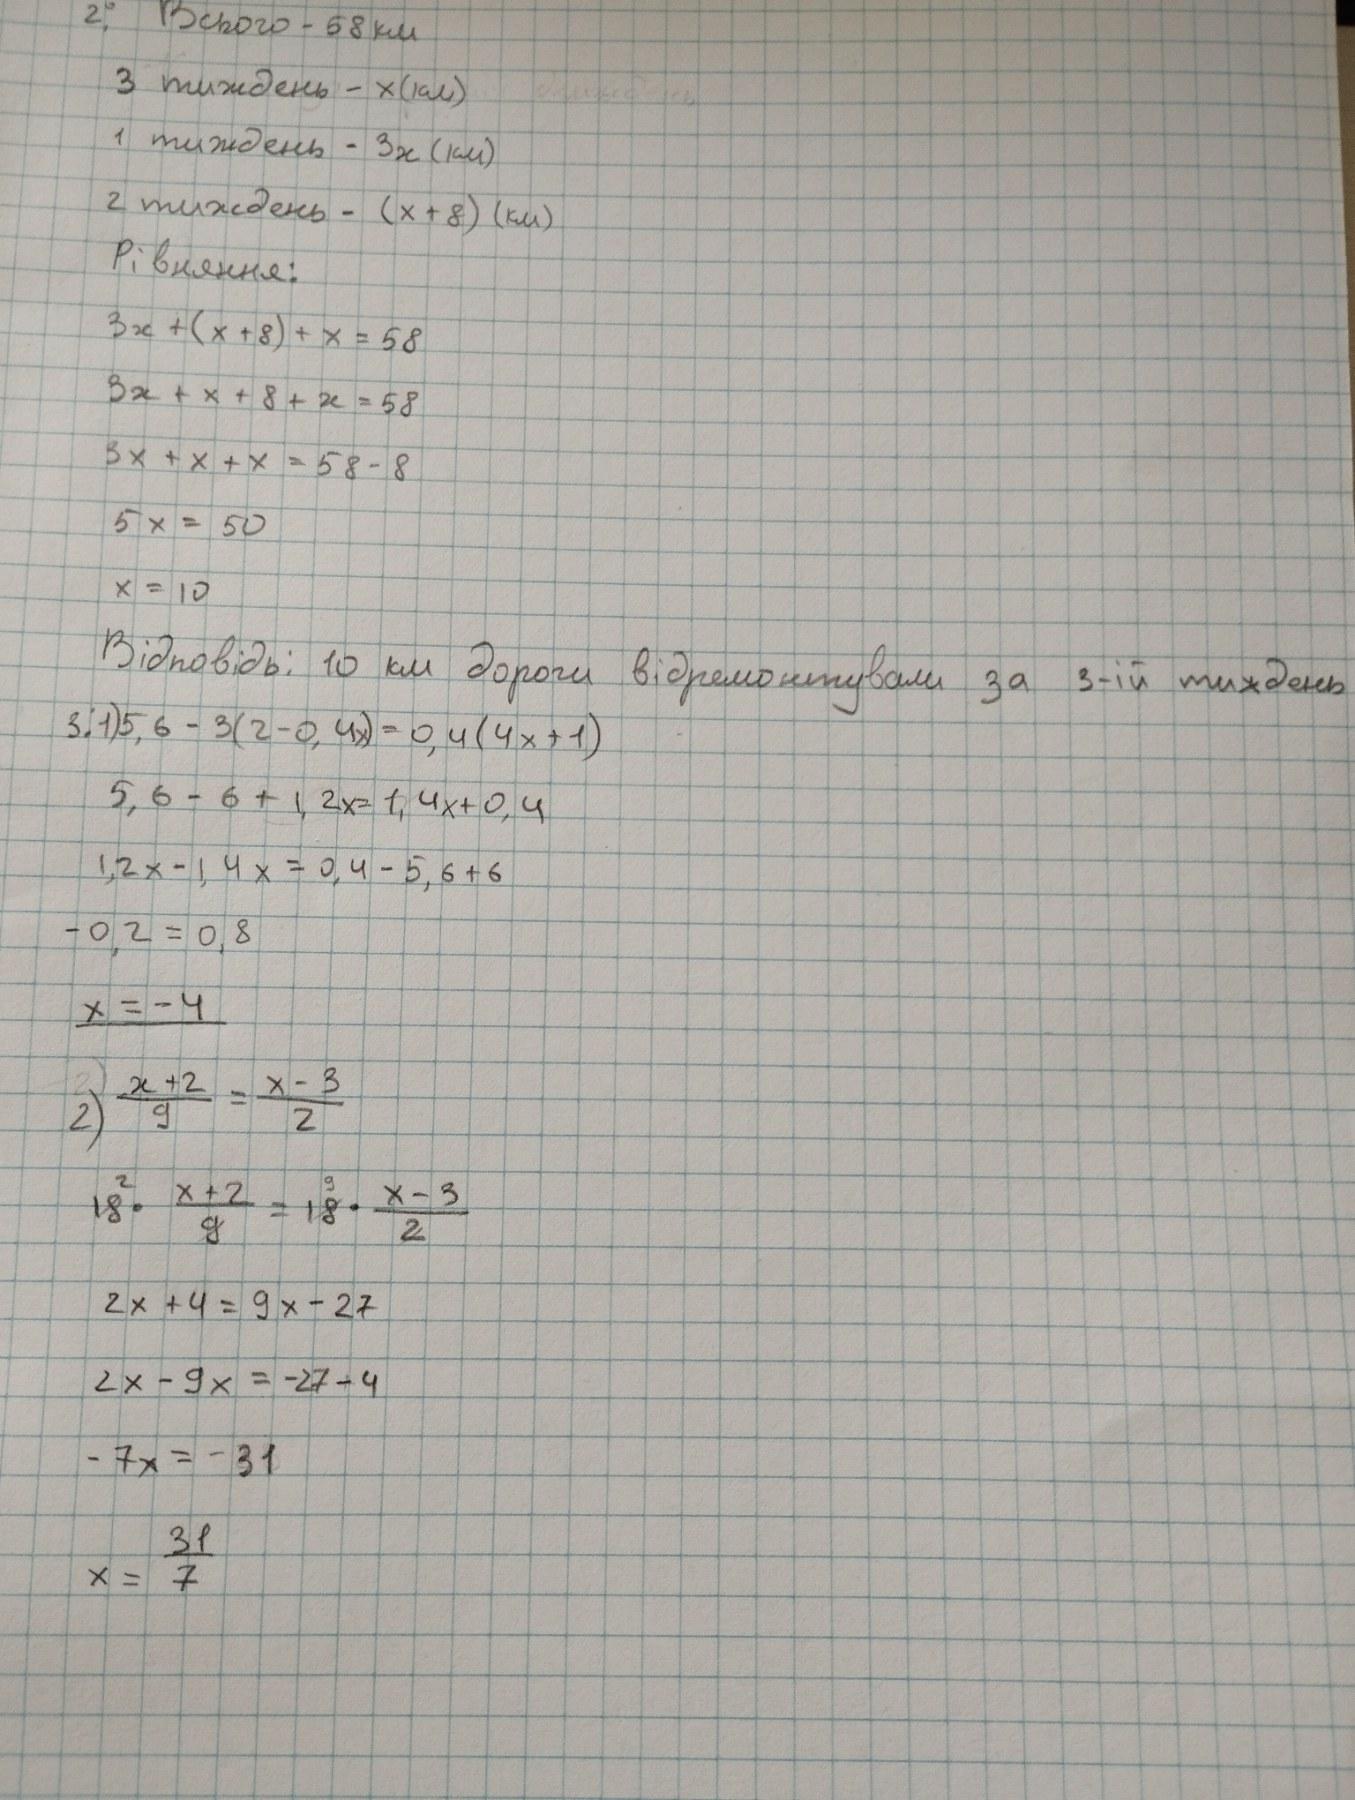 2. Всього - 58 км
3 тиждень - x(км)
1 тиждень - 3x (км)
2 тиждень - (x+8) (км)
Рівняння:
3x + (x+8) + x = 58
3x + x + 8 + x = 58
3x + x + x = 58 - 8
5x = 50
x = 10
Відповідь: 10 км дороги відремонтували за 3-ій тиждень
3. 1) 5,6 - 3(2-0,4x) = 0,4(4x+1)
5,6 - 6 + 1,2x = 1,4x + 0,4
1,2x - 1,4x = 0,4 - 5,6 + 6
-0,2 = 0,8
x = -4
2) \frac{x+2}{9} = \frac{x-3}{2}
18^2 · \frac{x+2}{9} = 18^9 · \frac{x-3}{2}
2x + 4 = 9x - 27
2x - 9x = -27 - 4
-7x = -31
x = \frac{31}{7}